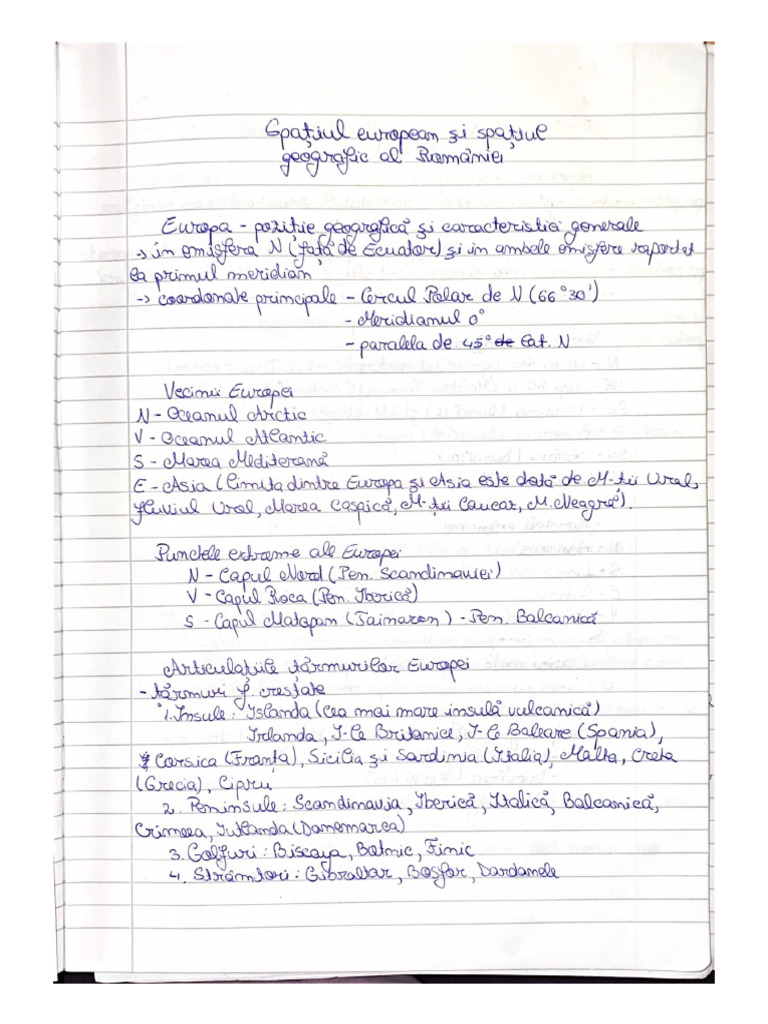 Spațiul european și spațiul
geografic al României
Europa - poziție geografică și caracteristici generale
-> în emisfera N (față de Ecuator) și în ambele emisfere raportat
la primul meridian
-> coordonate principale - Cercul Polar de N (66°30')
- Meridianul 0°
- paralela de 45° de lat. N
Vecinii Europei
N - Oceanul Arctic
V - Oceanul Atlantic
S - Marea Mediterană
E - Asia (limita dintre Europa și Asia este dată de M-ții Ural,
fluviul Ural, Marea Caspică, M-ții Caucaz, M. Neagră).
Punctele extreme ale Europei
N - Capul Nord (Pen. Scandinaviei)
V - Capul Roca (Pen. Iberică)
S - Capul Matapan (Tainaron) - Pen. Balcanică
Articulațiile țărmurilor Europei
- țărmuri f. crestate
1. Insule: Islanda (cea mai mare insulă vulcanică)
Irlanda, I-le Britanici, I-le Baleare (Spania),
Corsica (Franța), Sicilia și Sardinia (Italia), Malta, Creta
(Grecia), Cipru
2. Peninsule: Scandinavia, Iberică, Italică, Balcanică,
Crimeea, Iutlanda (Danemarca)
3. Golfuri: Biscaya, Botnic, Finic
4. Strâmtori: Gibraltar, Bosfor, Dardanele